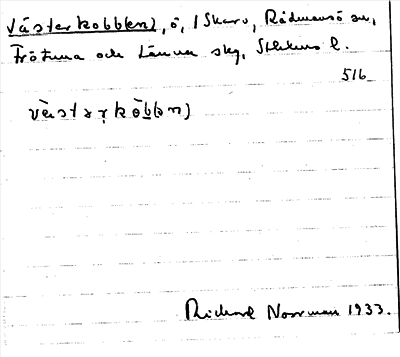 Västerkobben), ö, /Skarv, Rådmansö sn,
Frötuna och Länna skg, Sthlms l.
516
väst ər kòb̀bn)
Richard Norrman 1933.